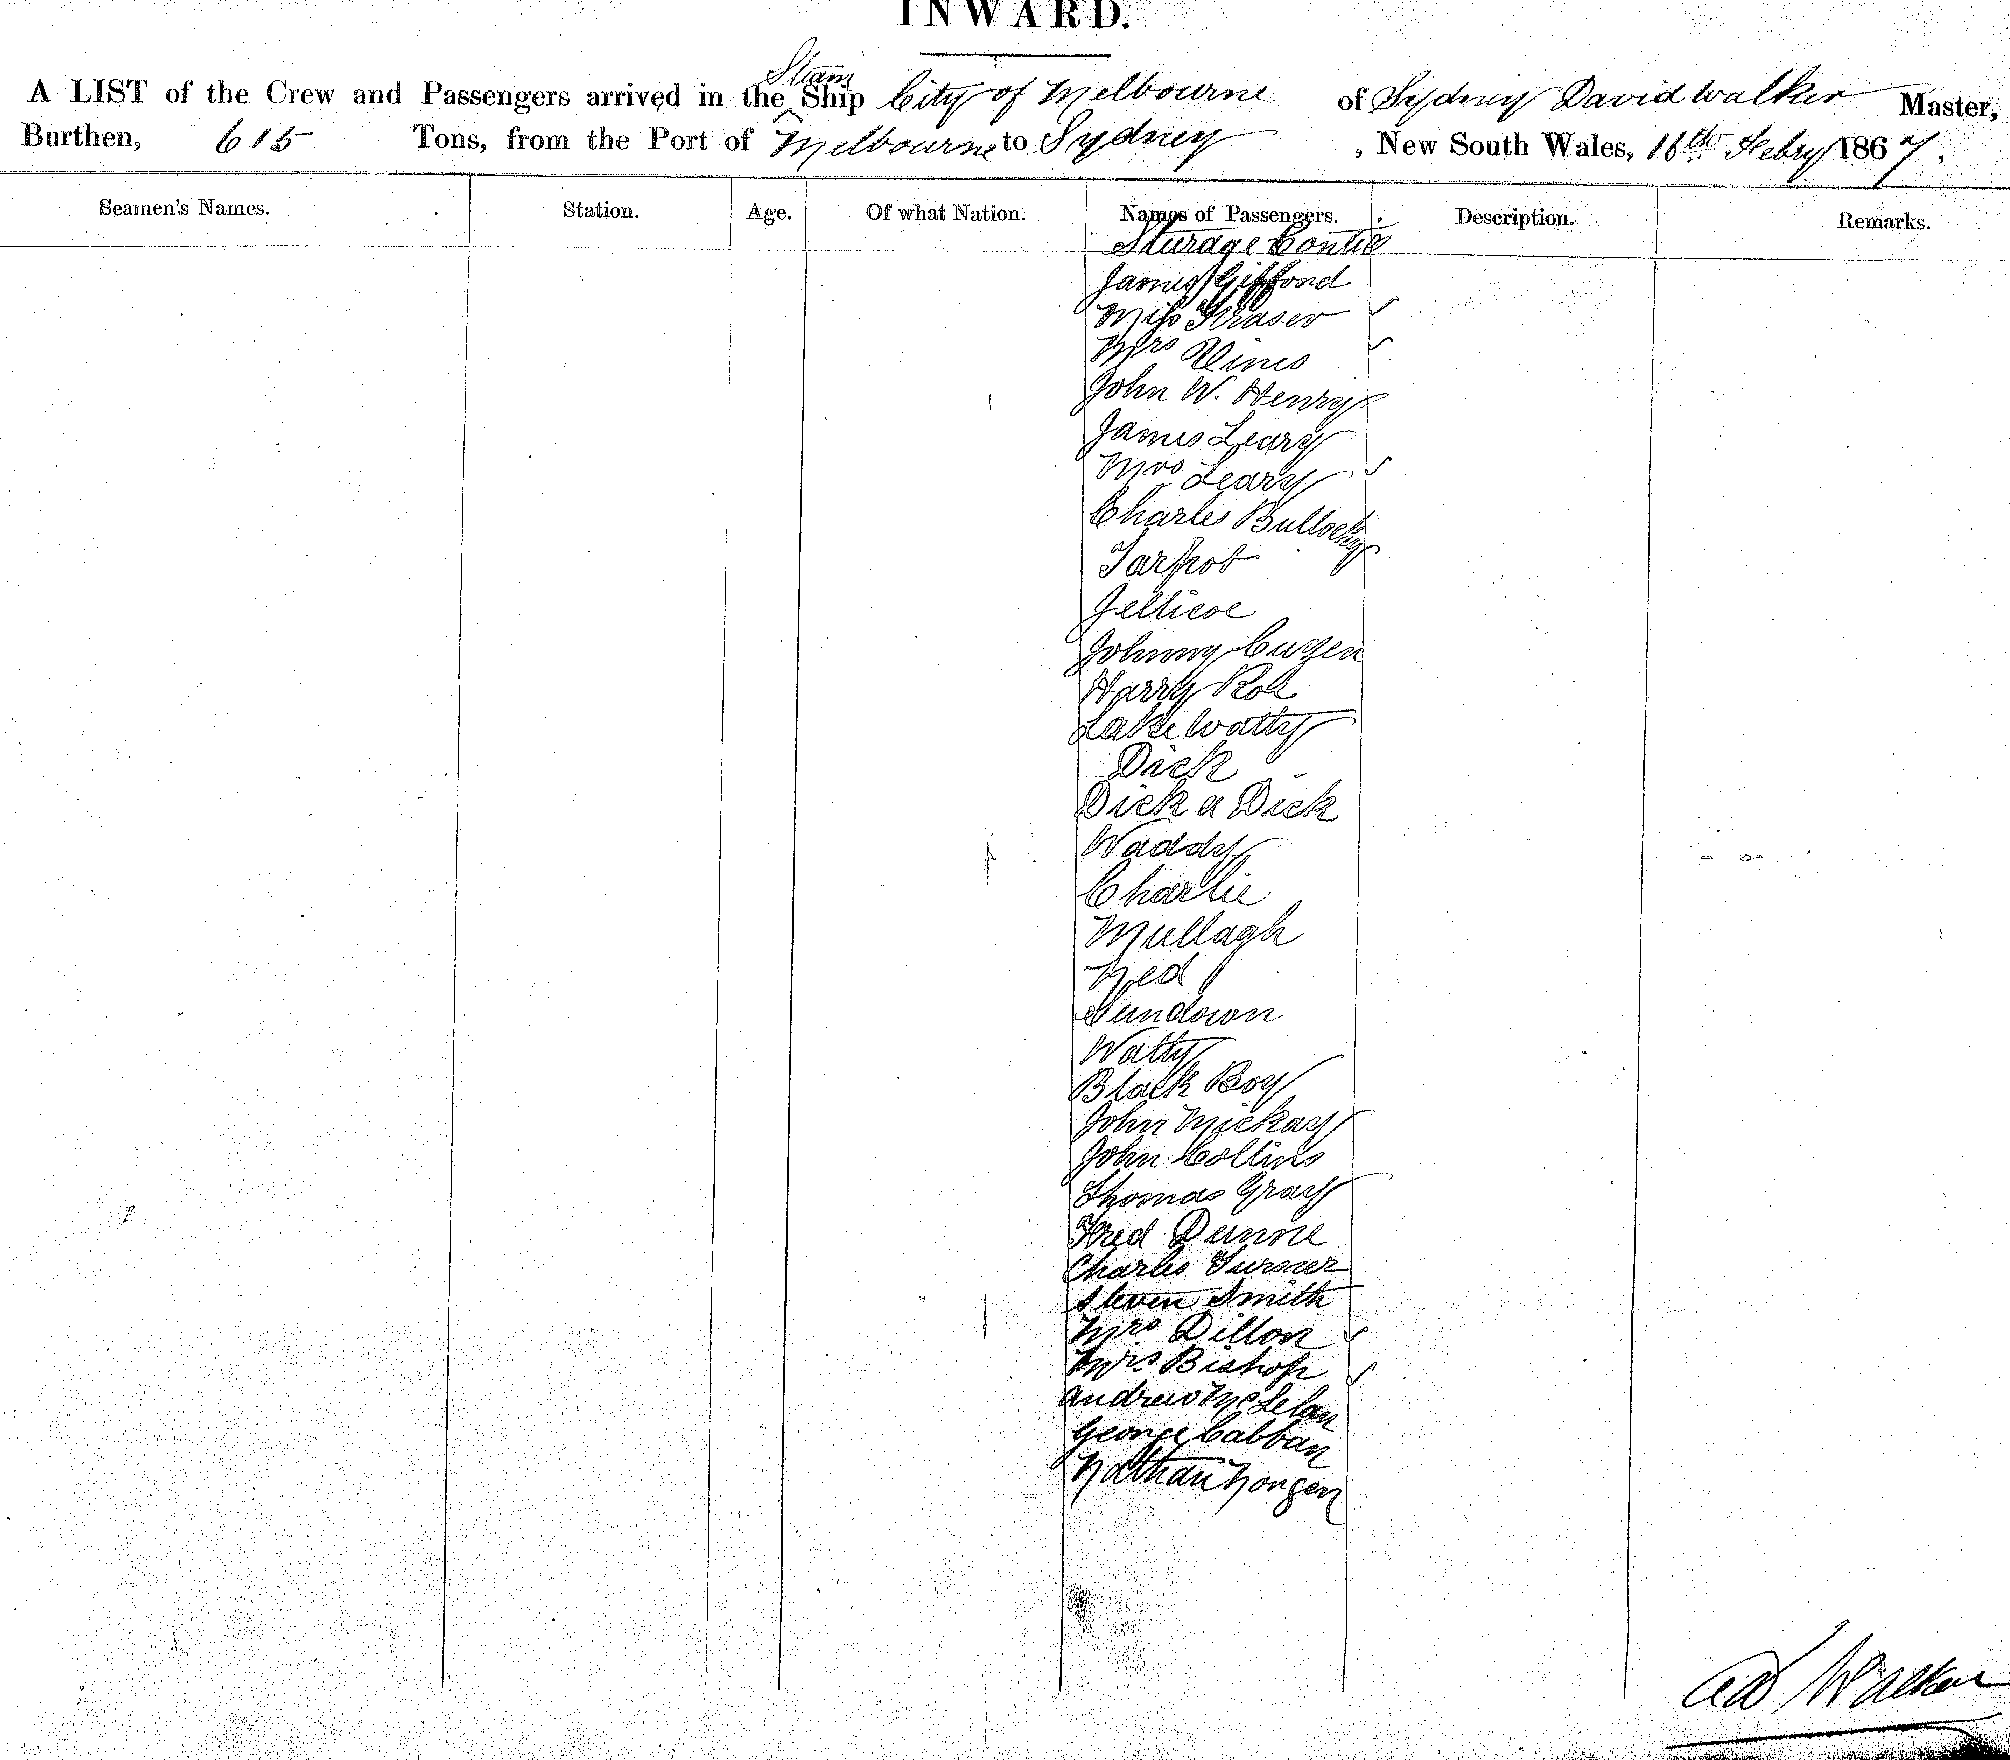 INWARD.
A LIST of the Crew and Passengers arrived in the Steam Ship City of Melbourne of Sydney David Walker Master,
Burthen, 615 Tons, from the Port of Melbourne to Sydney , New South Wales, 16th Febry 1867.
Seamen's Names. Station. Age. Of what Nation. Names of Passengers. Description. Remarks.
Steerage Contd
James Giffond
Miss Fraser
Mrs Vines
John W. Henry
James Leary
Mrs Leary
Charles Bullocky
Tarpot
Jellicoe
Johnny Cuzen
Harry Rose
Lake Watty
Dick
Dick a Dick
Waddy
Charlie
Mullagh
Ned
Sundown
Watty
Black Boy
John Mickay
John Collins
Thomas Gray
Fred Dunne
Charles Turner
Steven Smith
Mrs Dillon
Mrs Bishop
Andrew McLelan
George Cabban
Nathan
Walker